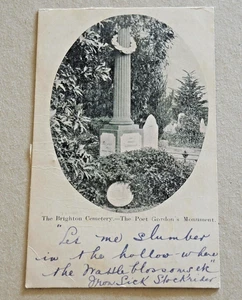 The Brighton Cemetery.—The Poet Gordon's Monument
"Let me slumber
in the hollow where
the Wattle blossoms
Sick Stockrider